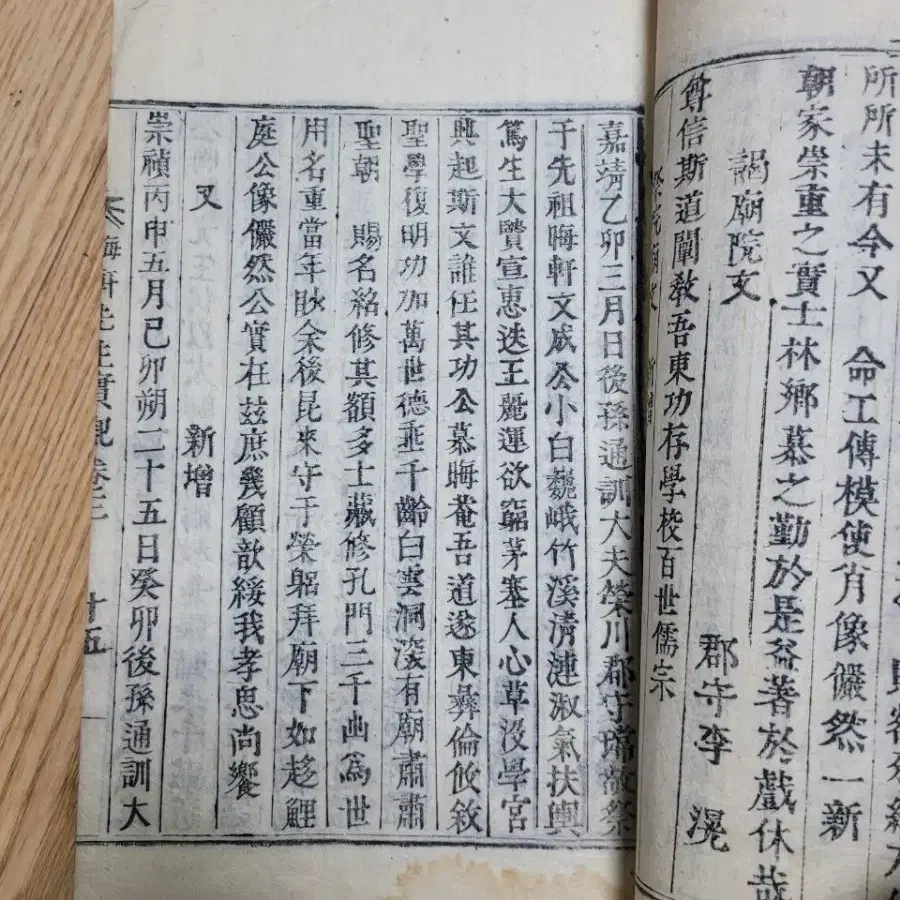 所所未有今又 命工傳模使肖像儼然一新
朝家崇重之實士林鄉慕之勤於是益著於戲休哉
謁廟院文 郡守李 滉
尊信斯道闡敎吾東功存學校百世儒宗
嘉靖乙卯三月日後孫通訓大夫榮川郡守瑺敢祭
于先祖晦軒文成公小白巍峨竹溪淸漣淑氣扶輿
篤生大賢宣惠迭王麗運欲窮茅塞人心草沒學宮
興起斯文誰任其功公慕晦菴吾道遂東彝倫攸敘
聖學復明功加萬世德垂千齡白雲洞深有廟肅肅
聖朝 賜名紹修其額多士藏修孔門三千幽爲世
用名重當年眇余後昆來守于榮躬拜廟下如趍鯉
庭公像儼然公實在玆庶幾顧歆綏我孝思尙饗
又 新增
崇禎丙申五月己卯朔二十五日癸卯後孫通訓大
晦軒先生實 卷二 十五